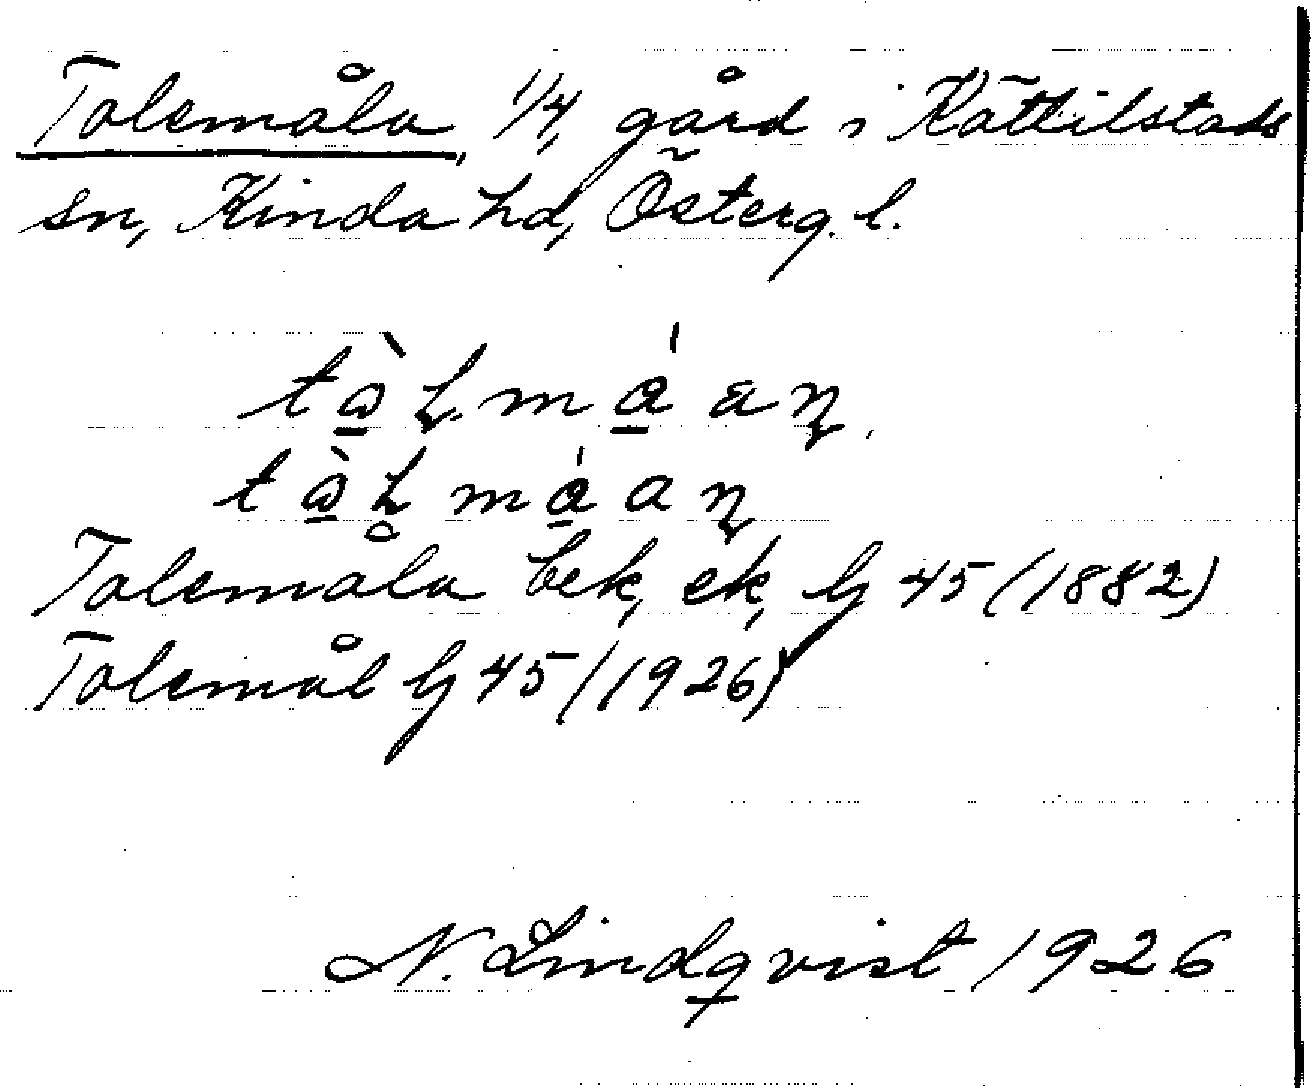 Tolemåla, 1/4, gård i Kättilstads
sn, Kinda hd, Österg. l.
Tolemåla bek, ek, lj 45 (1882)
Tolemål lj 45 (1926)
N. Lindqvist 1926